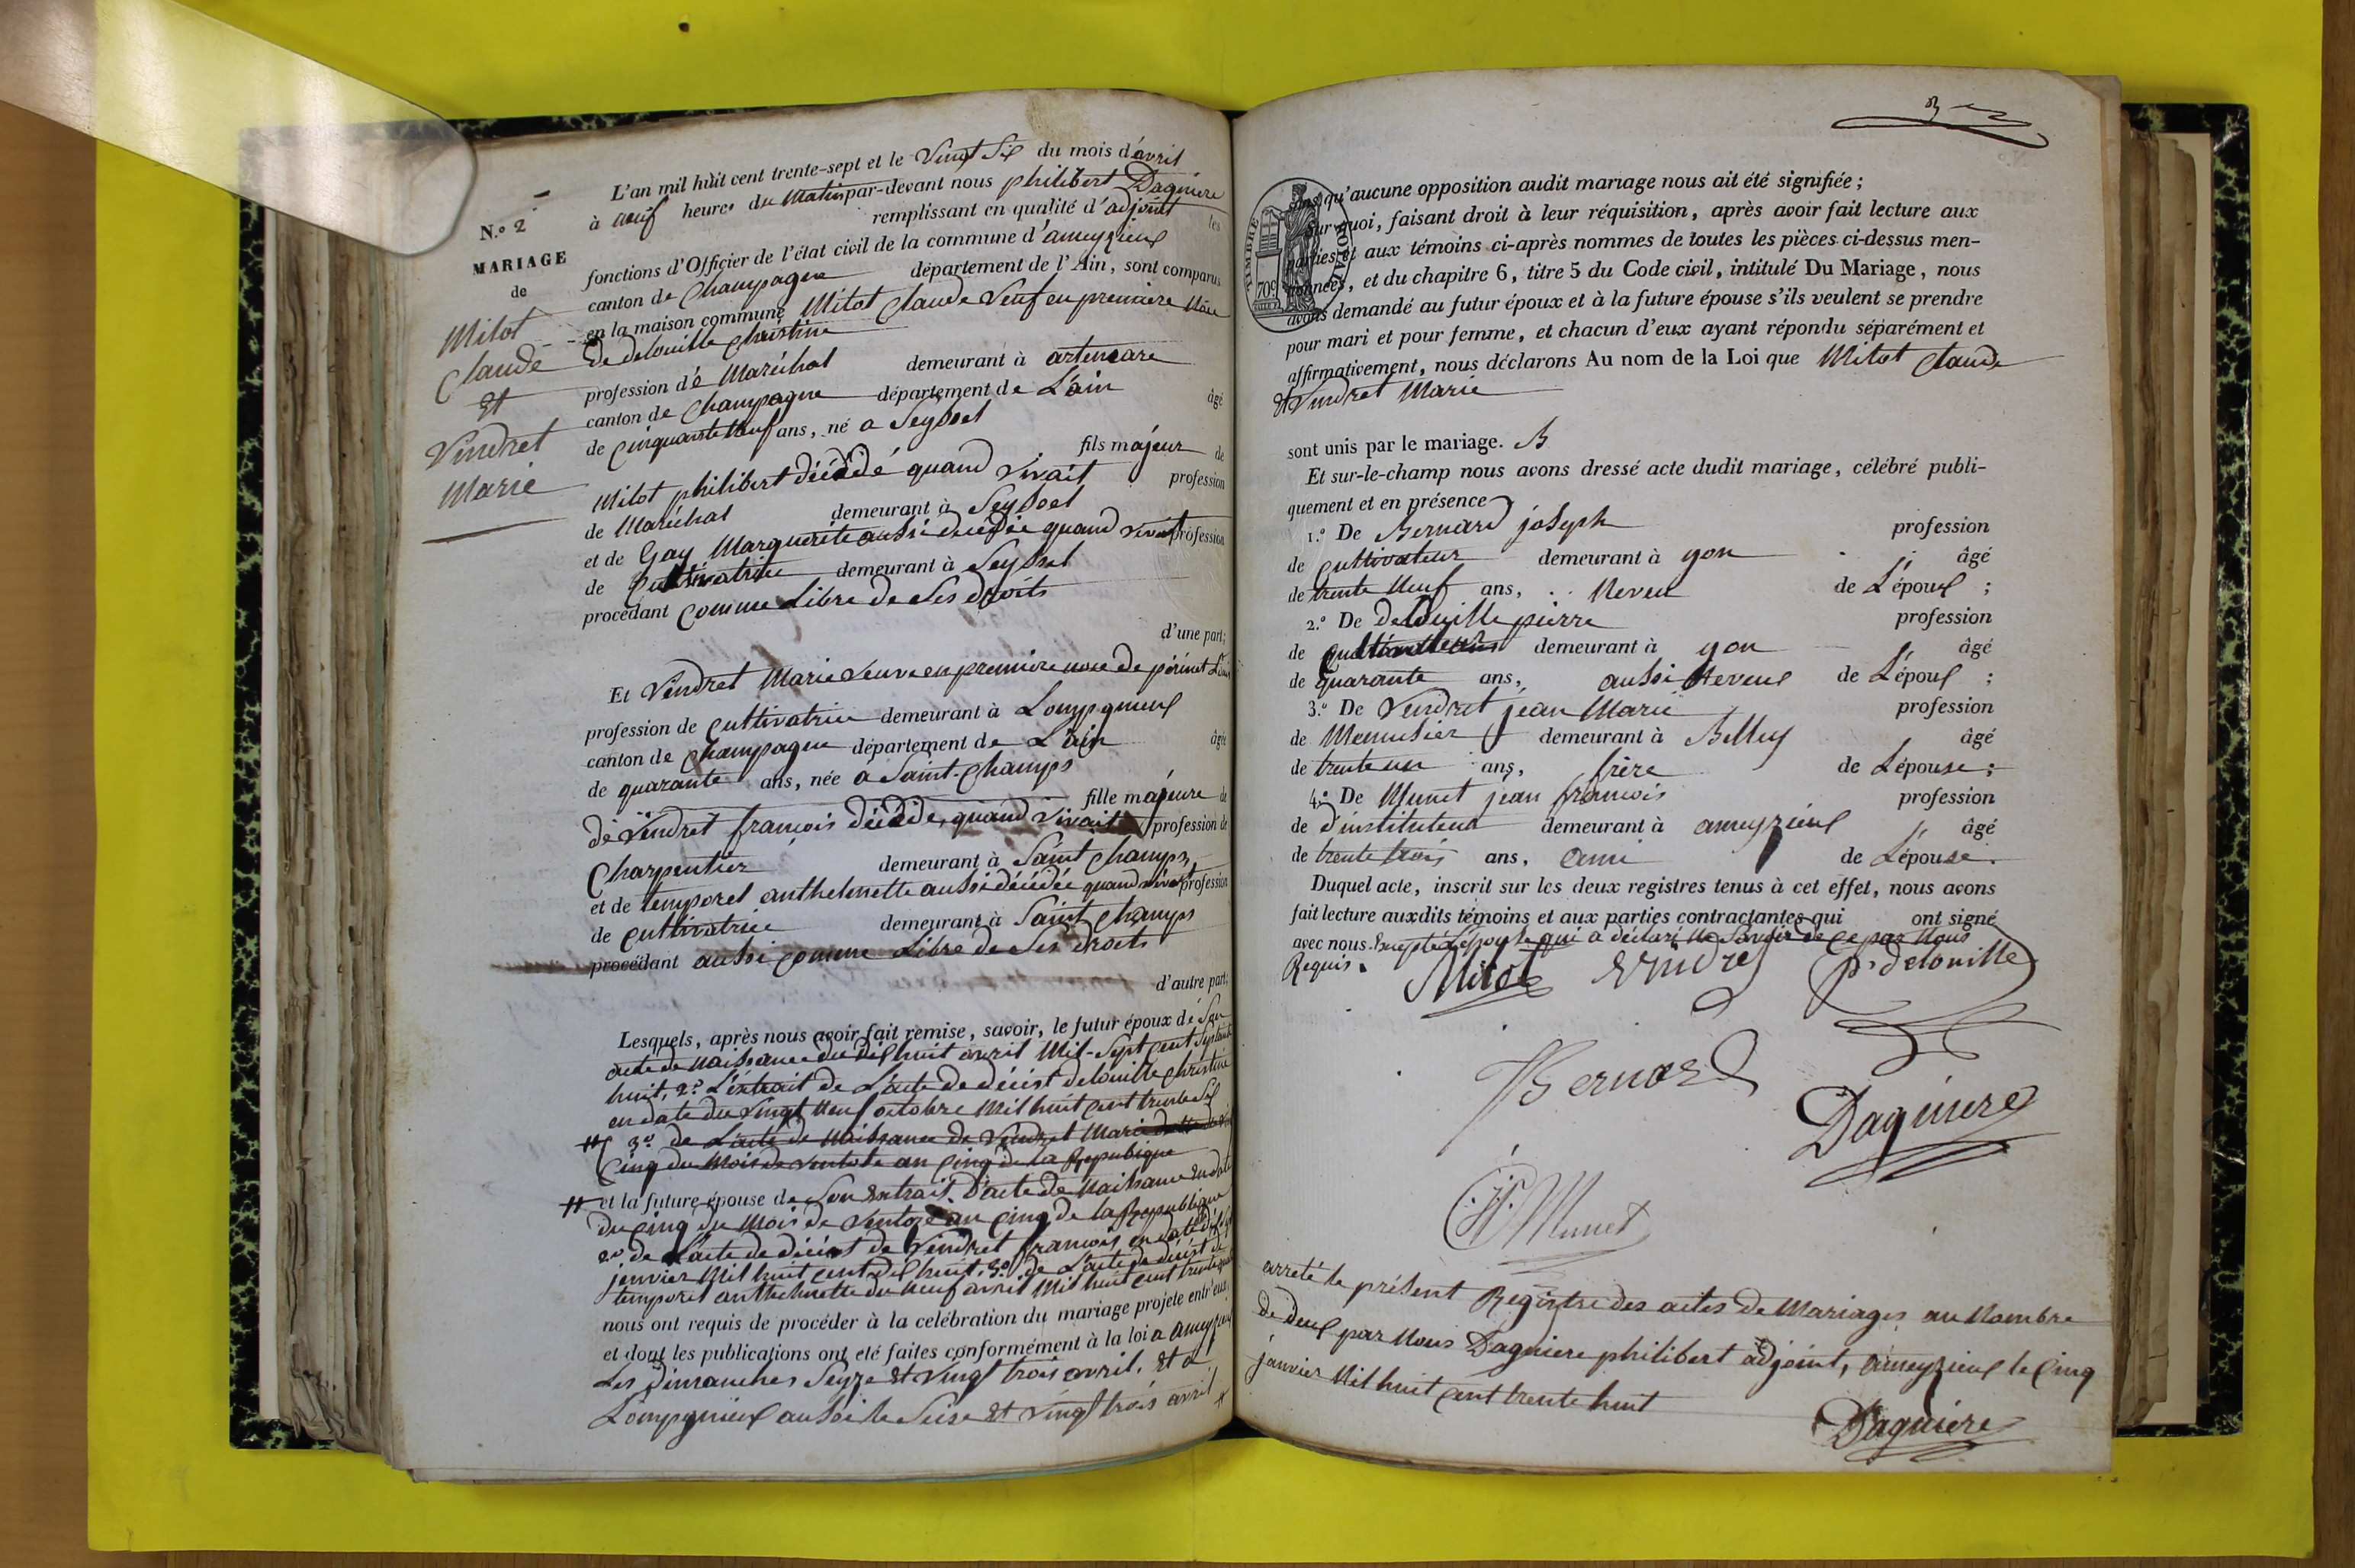 N.o 2
MARIAGE
de
Mitot
Claude
et
Vindret
Marie
L'an mil huit cent trente-sept et le vingt Six du mois d'avril
à neuf heures du Matin par-devant nous philibert Daguiere
remplissant en qualité d'adjoint les
fonctions d'Officier de l'état civil de la commune d'ameyzieux
canton de Champagne département de l'Ain, sont comparus
en la maison commune Mitot Claude Veuf en premiere
de delouille Christine
profession de Maréchal demeurant à artemare
canton de Champagne département de L'ain âgé
de Cinquante Neuf ans, né a Seyssel
fils majeur de
Mitot philibert décédé quand vivait profession
de Maréchal demeurant à Seyssel
et de Gay Marguerite aussi décédée quand vivait profession
de Cultivatrice demeurant à Seyssel
procédant Comme Libre de Ses droits
d'une part;
Et Vindret Marie Veuve en premiere nose de périnet
profession de Cultivatrice demeurant à Lompgnieux
canton de Champagne département de L'ain âgée
de quarante ans, née a Saint-Champs
fille majeure de
de Vindret françois décédé, quand vivait profession de
Charpentier demeurant à Saint Champs,
et de temporel anthelmette aussi décédée quand vivait profession
de Cultivatrice demeurant à Saint Champs
procédant aussi Comme Libre de Ses droits
d'autre part;
Lesquels, après nous avoir fait remise, savoir, le futur époux de Son
acte de Naissance du dix huit avril Mil-Sept Cent Septante
huit, 2.o L'extrait de L'acte de décést delouille Christine
en date du vingt Neuf octobre Mil huit Cent trente Six
3.o de L'acte de Naissance de Vindret Marie
Cinq du Mois de Ventose an Cinq de la Republique
et la future épouse de Son Extrait d'acte de Naissance En date
du Cinq du Mois de Ventose an Cinq de la Republique
2.o de L'acte de décést de Vindret françois en date
janvier Mil huit Cent dix huit, 3.o de L'acte de décést de
temporel anthelmette du Neuf avril Mil huit Cent
nous ont requis de procéder à la celébration du mariage projeté entr'eux,
et dont les publications ont été faites conformément à la loi a ameyzieux
Les Dimanches Seyze Et Vingt trois avril, Et a
Lompgnieux aussi le Seise Et Vingt trois avril
3
TIMBRE ROYAL
70c
sans qu'aucune opposition audit mariage nous ait été signifiée;
Sur quoi, faisant droit à leur réquisition, après avoir fait lecture aux
parties et aux témoins ci-après nommes de toutes les pièces ci-dessus men-
tionnées, et du chapitre 6, titre 5 du Code civil, intitulé Du Mariage, nous
avons demandé au futur époux et à la future épouse s'ils veulent se prendre
pour mari et pour femme, et chacun d'eux ayant répondu séparément et
affirmativement, nous déclarons Au nom de la Loi que Mitot Claude
Et Vindret Marie
sont unis par le mariage.
Et sur-le-champ nous avons dressé acte dudit mariage, célébré publi-
quement et en présence
1.o De Bernard joseph profession
de Cultivateur demeurant à yon âgé
de trente Neuf ans, Neveu de L'époux;
2.o De delouille pierre profession
de Cultivateur demeurant à yon âgé
de quarante ans, aussi Neveux de L'époux;
3.o De Vindret jean Marie profession
de Menuisier demeurant à Belley âgé
de trente un ans, frère de L'épouse;
4.o De Munet jean françois profession
de d'instituteur demeurant à ameyzieux âgé
de trente trois ans, ami de L'épouse.
Duquel acte, inscrit sur les deux registres tenus à cet effet, nous avons
fait lecture auxdits témoins et aux parties contractantes qui ont signé
avec nous. Excepté L'épouse qui a déclaré Ne Savoir de Ce par Nous
Requis.
Mitot Vindret p.e delouille
Bernard
Daguiere
Munet
arreté le présent Registre des actes de Mariages au Nombre
de deux par Nous Daguiere philibert adjoint, ameyzieux le Cinq
janvier Mil huit Cent trente huit
Daguiere